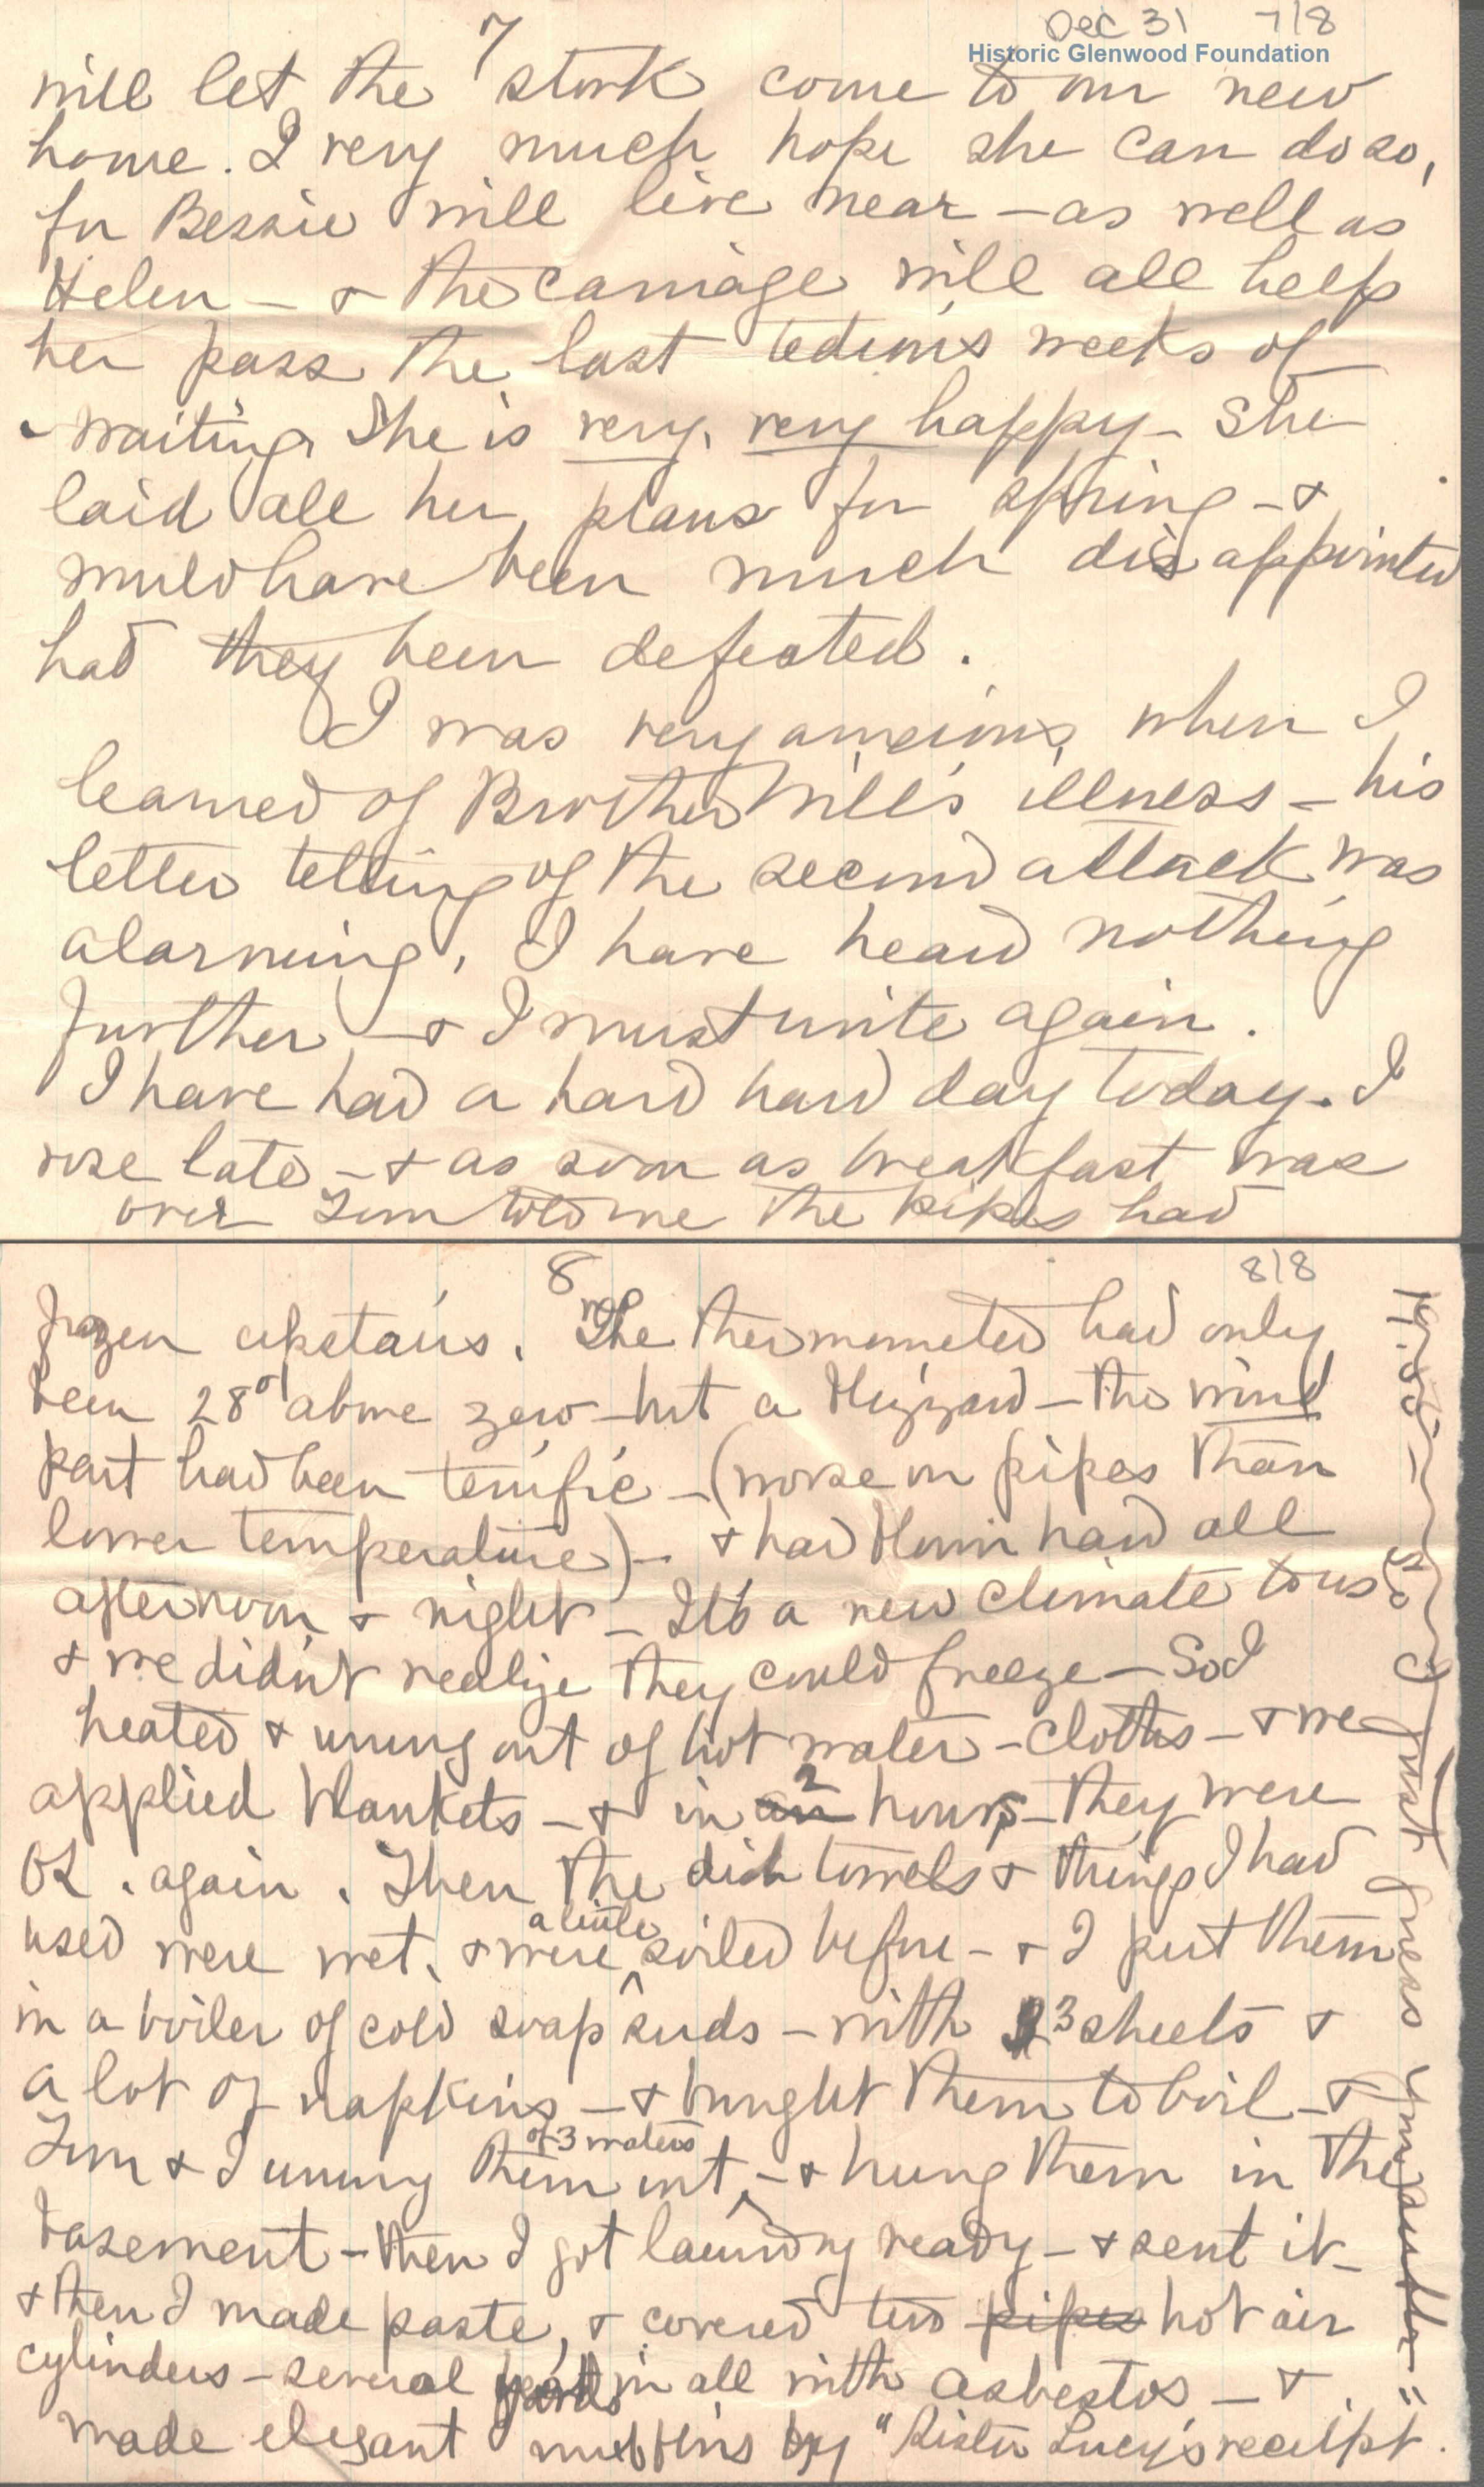 7
Dec 31 7/8
Historic Glenwood Foundation
will let the stork come to our new
home. I very much hope she can do so,
for Bessie will live near – as well as
Helen – & the carriage will all help
her pass the last tedious weeks of
waiting. She is very, very happy – She
laid all her plans for spring – &
would have been much disappointed
had they been defeated.
I was very anxious when I
learned of Brother Will's illness – his
letter telling of the second attack was
alarming, I have heard nothing
further – & I must write again.
I have had a hard hard day today. I
rose late – & as soon as breakfast was
over Tom told me the pipes had
8
8/8
frozen upstairs. The thermometer had only
been 28° above zero – but a blizzard – the wind
part had been terrific – (worse on pipes than
lower temperature) – & had blown hard all
afternoon & night – It's a new climate to us
& we didn't realize they could freeze – So I
heated & wrung out of hot water – cloths – & we
applied blankets – & in an 2 hours – they were
OK. again. Then the dish towels & things I had
used were wet, & were a little soiled before – & I put them
in a boiler of cold soap suds – with 3 sheets &
a lot of napkins – & brought them to boil – &
Tom & I wrung them out of 3 waters – & hung them in the
basement – then I got laundry ready – & sent it –
& then I made paste, & covered two pipes hot air
cylinders – several yards in all with asbestos – &
made elegant muffins by "Sister Lucy's receipt.
So I just guess